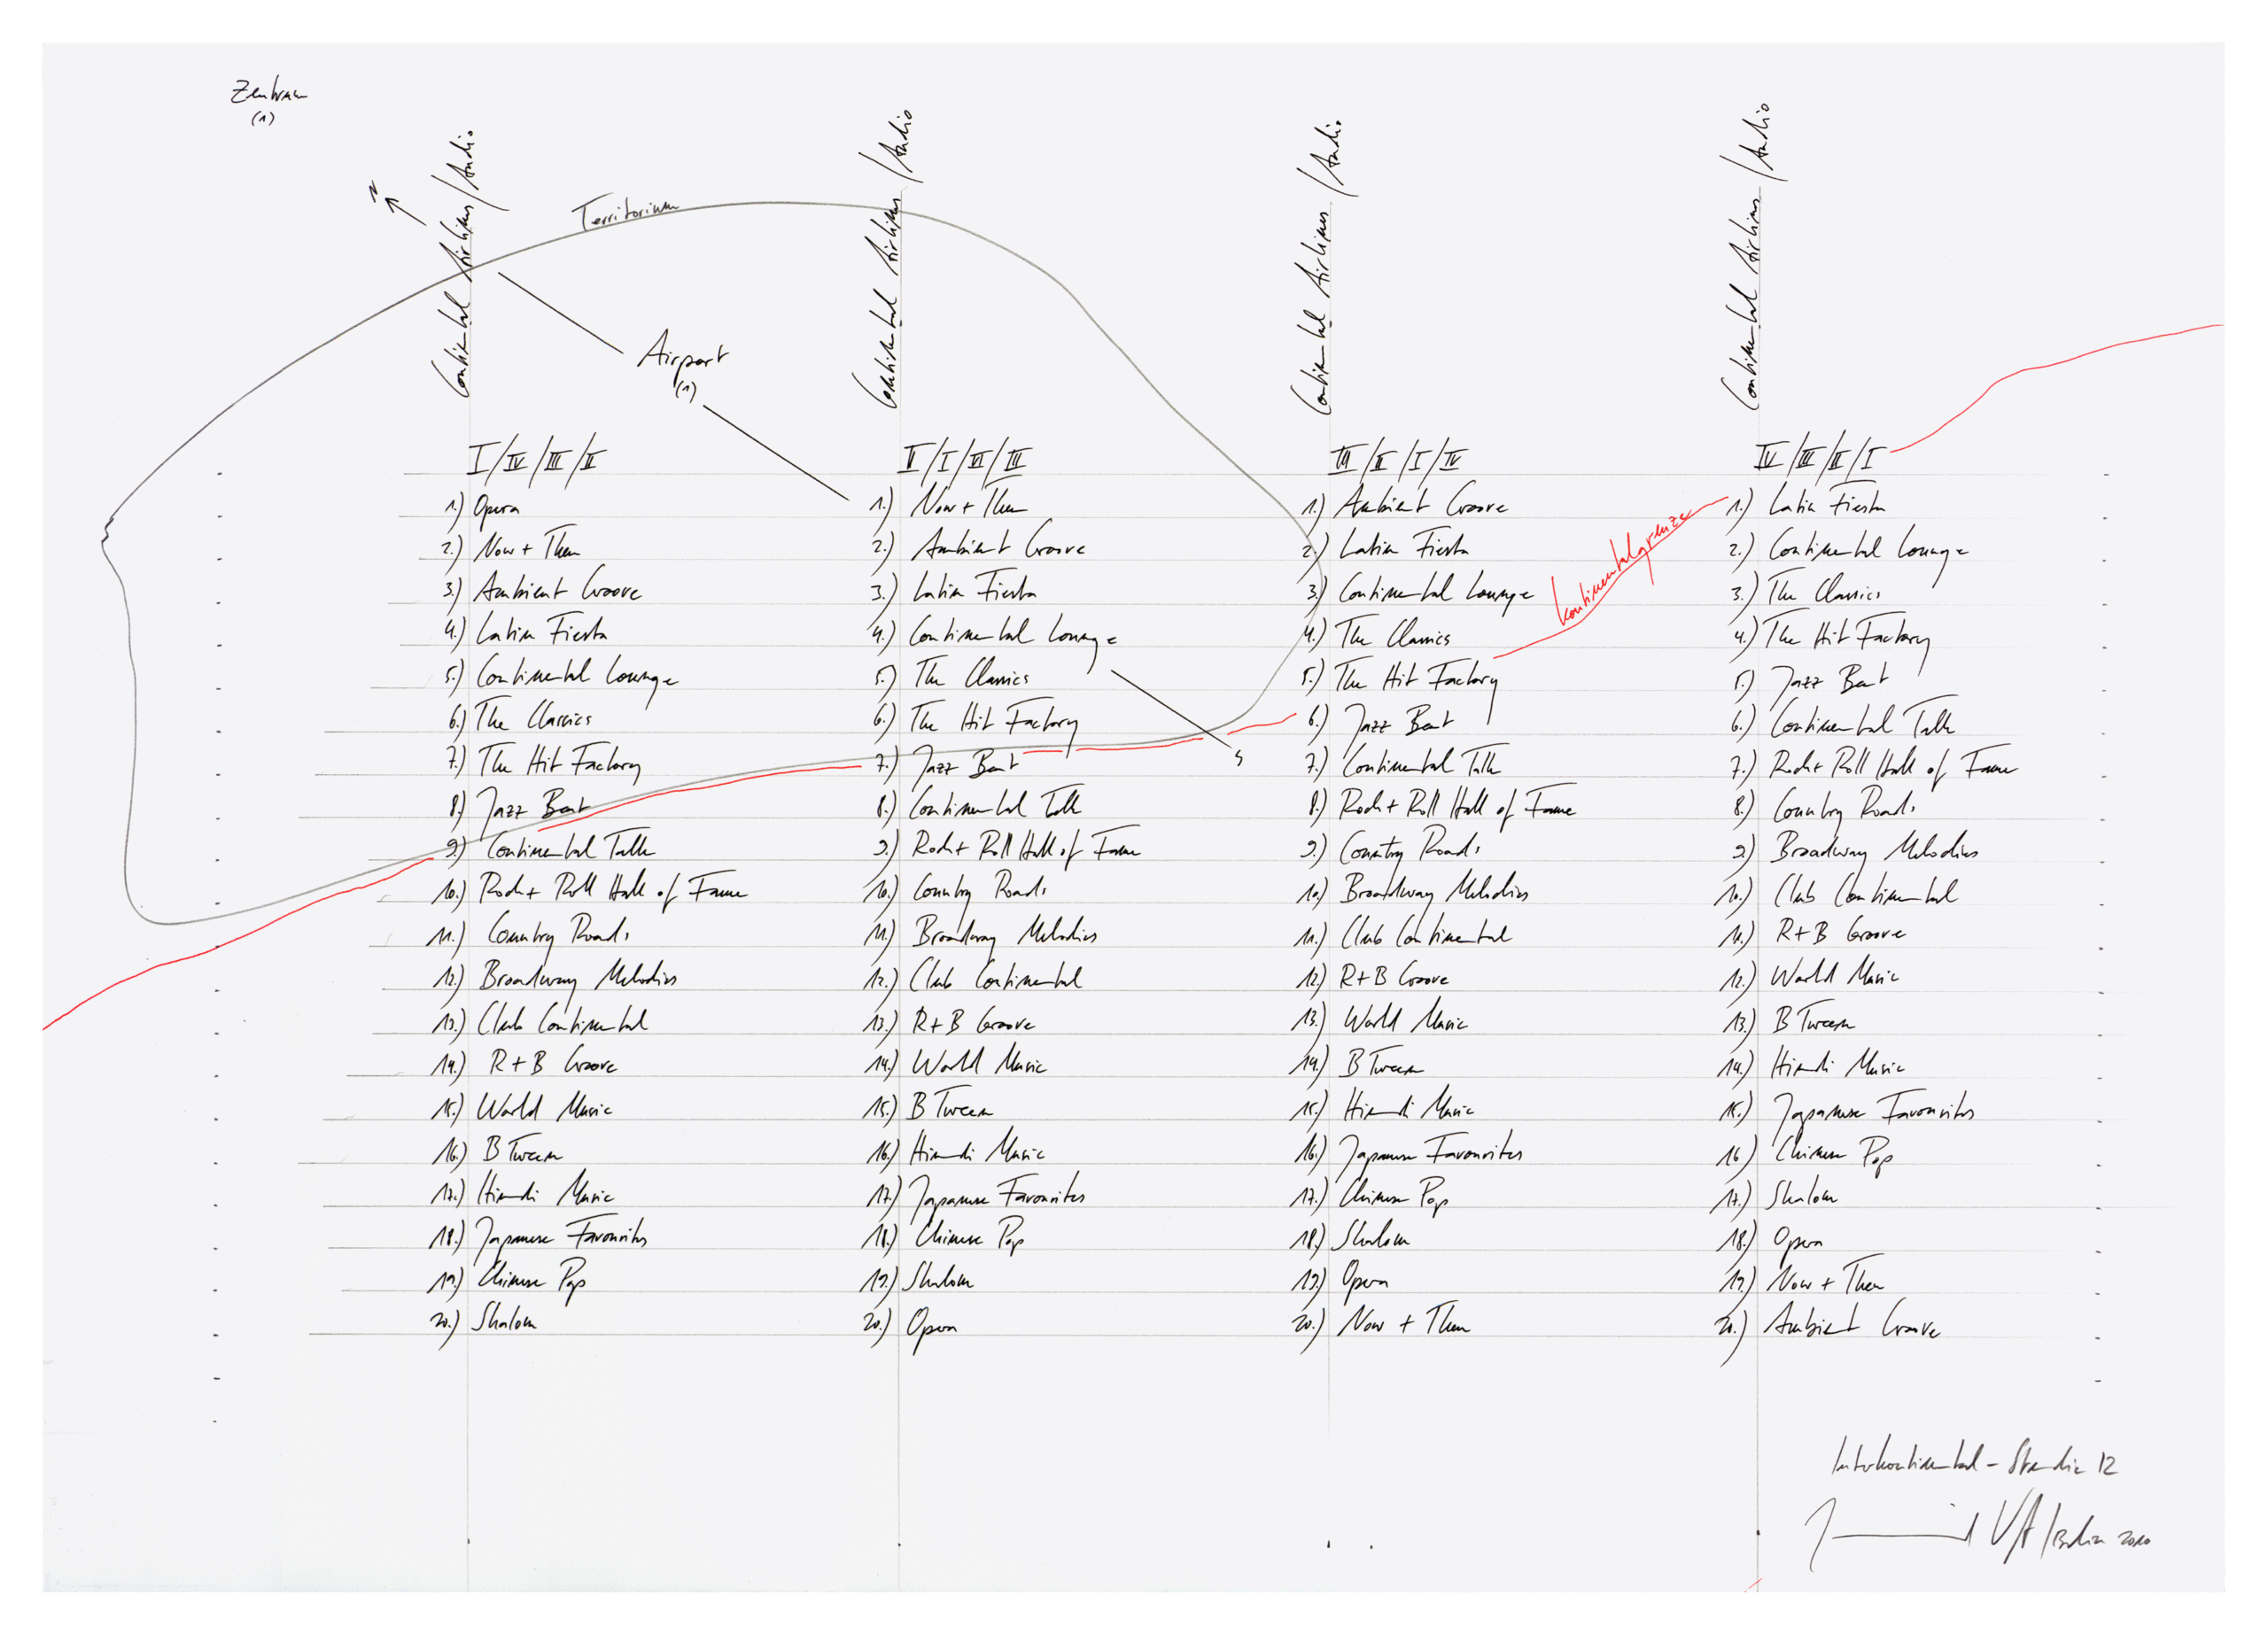 Zentrum
(1)
Continental Airlines / Audio
Continental Airlines / Audio
Continental Airlines / Audio
Continental Airlines / Audio
N
Territorium
Airport
(1)
S
Kontinentalgrenze
I/IV/III/II
1.) Opera
2.) Now + Then
3.) Ambient Groove
4.) Latin Fiesta
5.) Continental Lounge
6.) The Classics
7.) The Hit Factory
8.) Jazz Beat
9.) Continental Talk
10.) Rock + Roll Hall of Fame
11.) Country Roads
12.) Broadway Melodies
13.) Club Continental
14.) R + B Groove
15.) World Music
16.) B Tween
17.) Hindi Music
18.) Japanese Favourites
19.) Chinese Pop
20.) Shalom
II/I/IV/III
1.) Now + Then
2.) Ambient Groove
3.) Latin Fiesta
4.) Continental Lounge
5.) The Classics
6.) The Hit Factory
7.) Jazz Beat
8.) Continental Talk
9.) Rock + Roll Hall of Fame
10.) Country Roads
11.) Broadway Melodies
12.) Club Continental
13.) R + B Groove
14.) World Music
15.) B Tween
16.) Hindi Music
17.) Japanese Favourites
18.) Chinese Pop
19.) Shalom
20.) Opera
III/II/I/IV
1.) Ambient Groove
2.) Latin Fiesta
3.) Continental Lounge
4.) The Classics
5.) The Hit Factory
6.) Jazz Beat
7.) Continental Talk
8.) Rock + Roll Hall of Fame
9.) Country Roads
10.) Broadway Melodies
11.) Club Continental
12.) R + B Groove
13.) World Music
14.) B Tween
15.) Hindi Music
16.) Japanese Favourites
17.) Chinese Pop
18.) Shalom
19.) Opera
20.) Now + Then
IV/III/II/I
1.) Latin Fiesta
2.) Continental Lounge
3.) The Classics
4.) The Hit Factory
5.) Jazz Beat
6.) Continental Talk
7.) Rock + Roll Hall of Fame
8.) Country Roads
9.) Broadway Melodies
10.) Club Continental
11.) R + B Groove
12.) World Music
13.) B Tween
14.) Hindi Music
15.) Japanese Favourites
16.) Chinese Pop
17.) Shalom
18.) Opera
19.) Now + Then
20.) Ambient Groove
Interkontinental - Studie 12
/ Berlin 2010